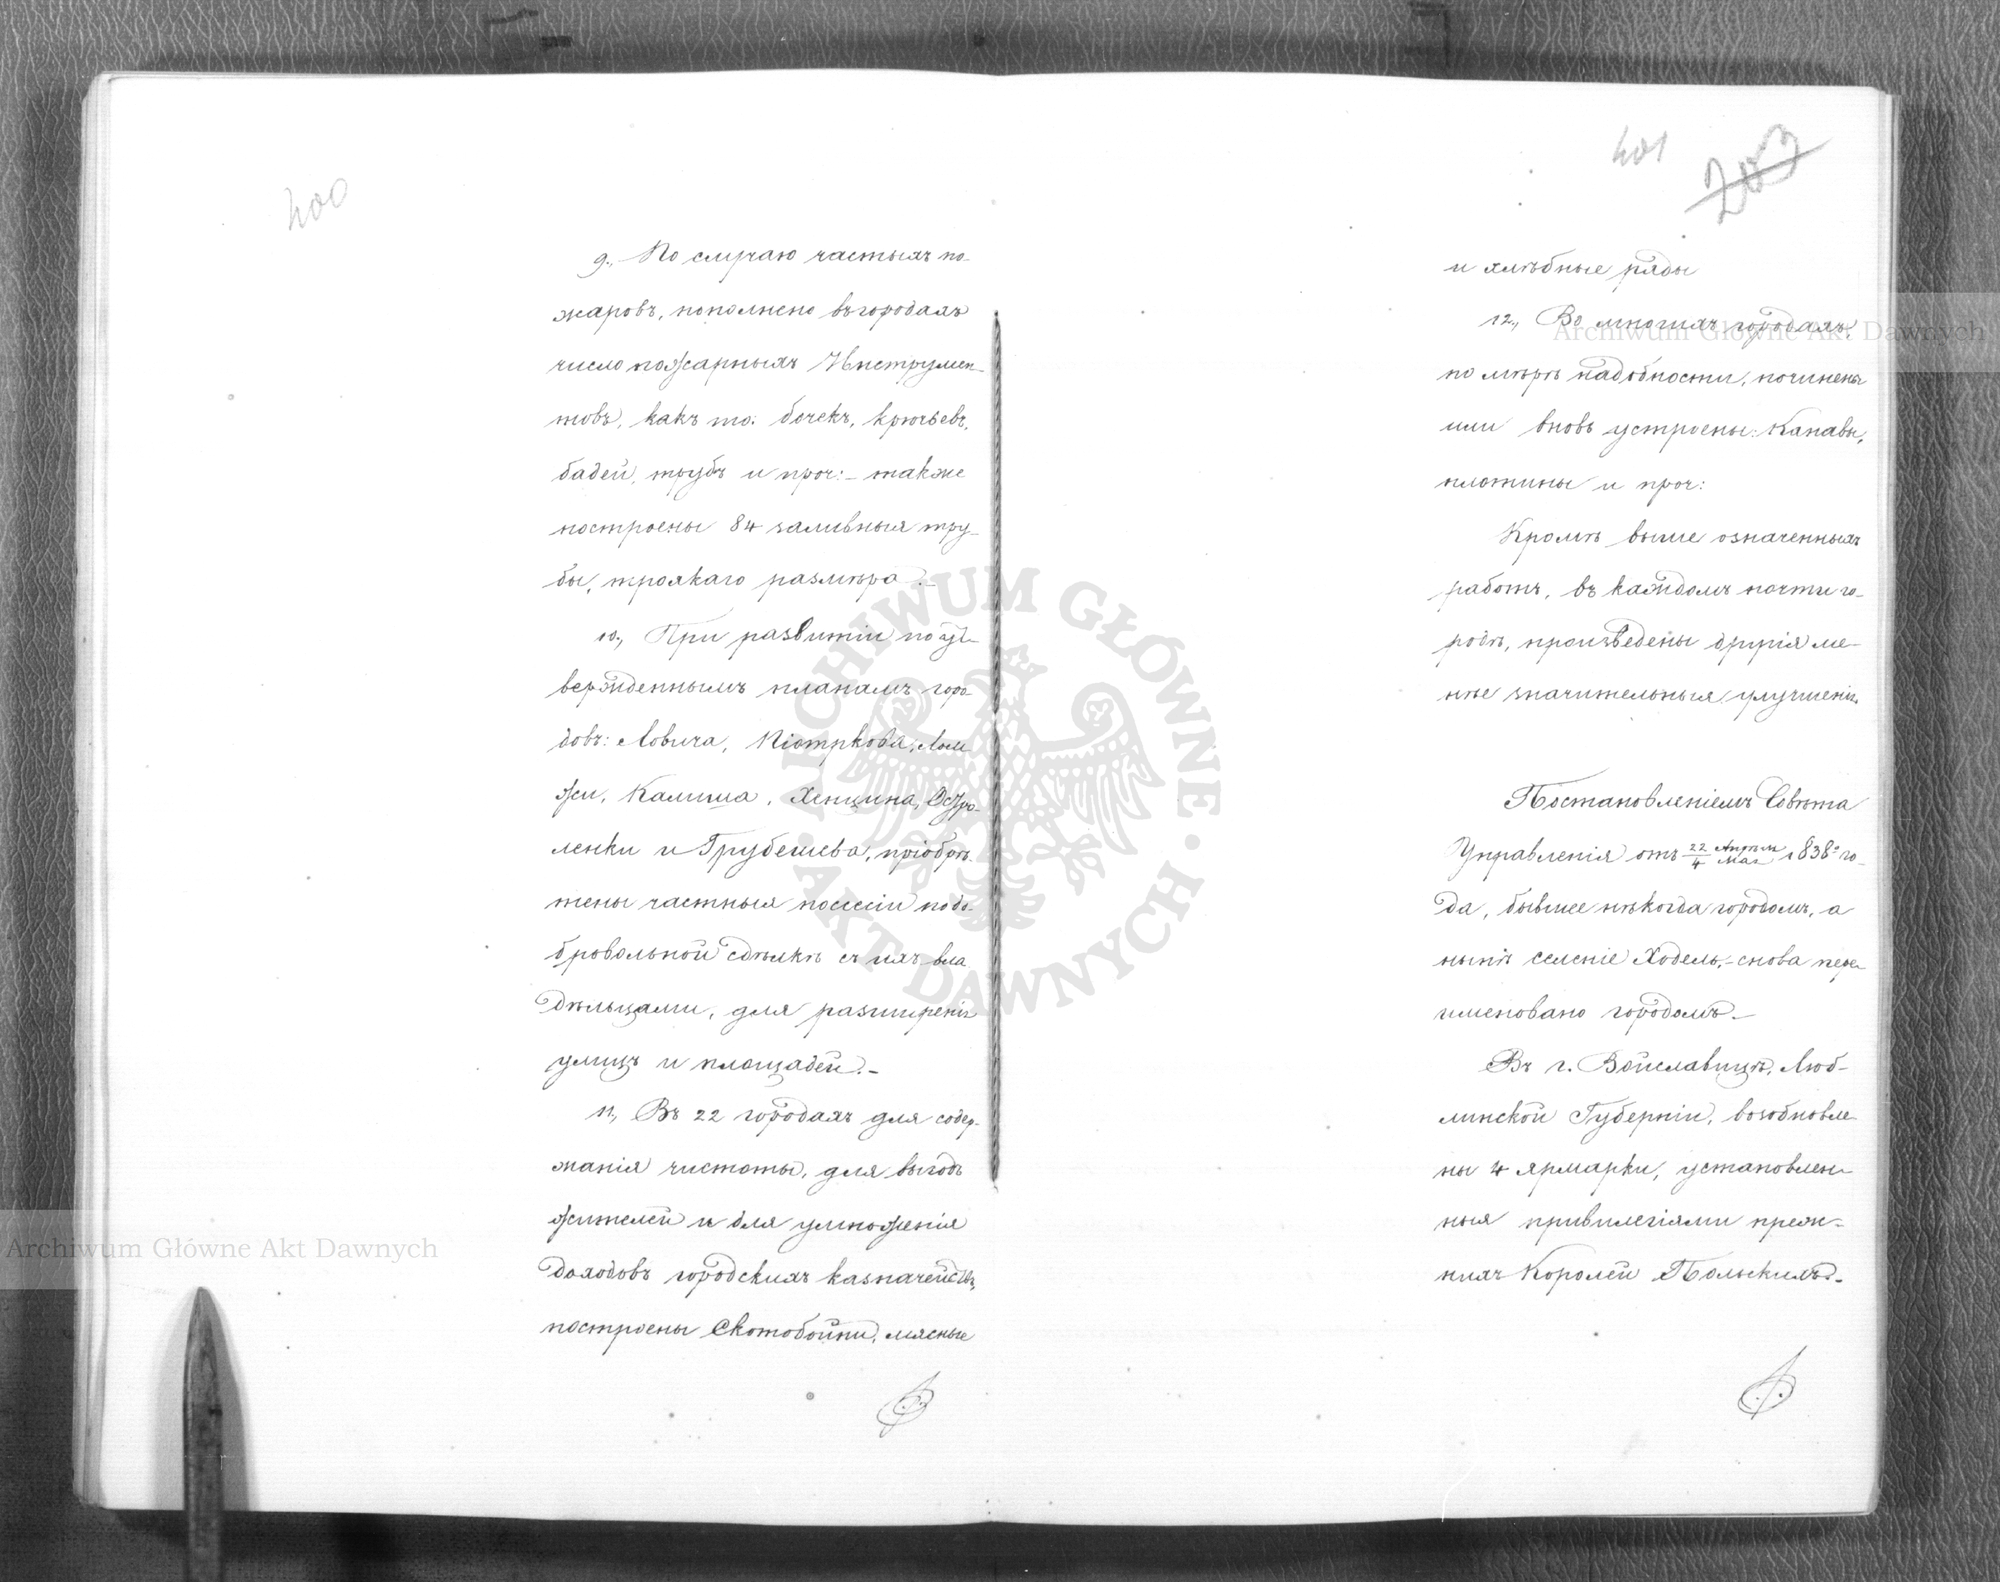 400
9., По случаю частыхъ по-
жаровъ, пополнено въ городахъ
число пожарныхъ Инструмен-
товъ, какъ то: бочекъ, крючьевъ,
бадей, трубъ и проч:– также
построены 84 заливныя тру-
бы, троякаго размѣра.–
10., При развитіи по ут-
вержденнымъ планамъ горо-
довъ: Ловича, Піотркова, Лом-
жи, Калиша, Хенцина, Остро-
ленки и Грубешева, пріобрѣ-
тены частныя посессіи по до-
бровольной сдѣлкѣ съ ихъ вла-
дѣльцами, для разширенія
улицъ и площадей.–
11., Въ 22 городахъ для содер-
жанія чистоты, для выгодъ
жителей и для умноженія
доходовъ городскихъ казначействъ,
построены Скотобойни, мясные
401
203
и хлѣбные ряды
12., Во многихъ городахъ,
по мѣрѣ надобности, починены
или вновь устроены: Канавы,
плотины и проч:
Кромѣ выше означенныхъ
работъ, въ каждомъ почти го-
родѣ, произведены другія ме-
нѣе значительныя улучшенія.
Постановленіемъ Совѣта
Управленія отъ 22/4 Апрѣля/Мая 1838го го-
да, бывшее нѣкогда городомъ, а
нынѣ селеніе Ходель,– снова пере-
именовано городомъ.–
Въ г. Войславицѣ, Люб-
линской Губерніи, возобновле-
ны 4 ярмарки, установлен-
ныя привилегіями преж-
нихъ Королей Польскихъ.–
Archiwum Główne Akt Dawnych
Archiwum Główne Akt Dawnych
ARCHIWUM GŁÓWNE · AKT DAWNYCH ·